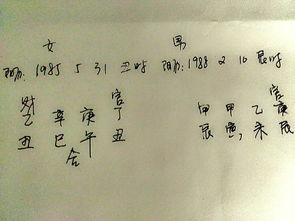 女 男
阳历:1985 5 31 丑时 阳历:1988 2 10 辰时
官 官
乙 辛 庚 丁 甲 甲 乙 庚
丑 巳 午 丑 辰 寅, 未 辰
合